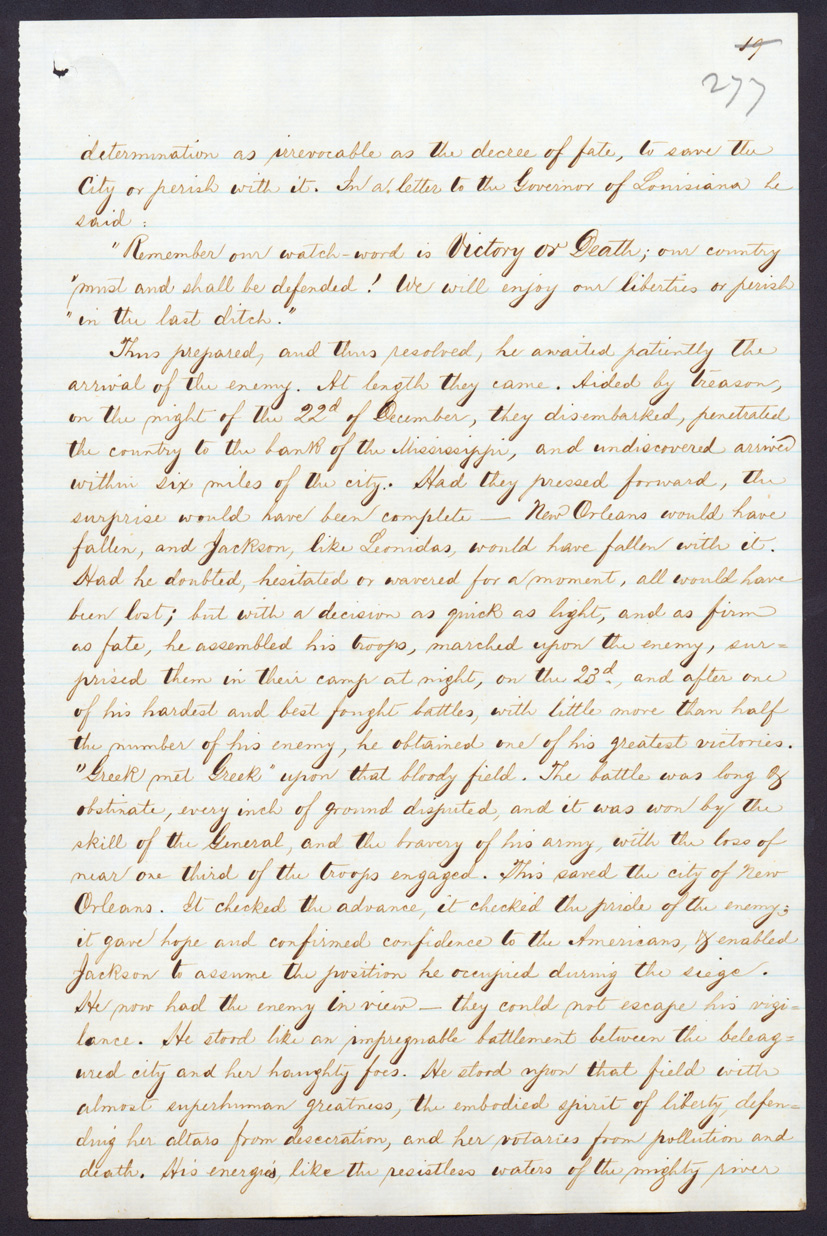 19
277
determination as irrevocable as the decree of fate, to save the
City or perish with it. In a letter to the Governor of Louisiana he
said:
"Remember our watch-word is Victory or Death; our country
"must and shall be defended! We will enjoy our liberties or perish
"in the last ditch."
Thus prepared, and thus resolved, he awaited patiently the
arrival of the enemy. At length they came. Aided by treason,
on the night of the 22d of December, they disembarked, penetrated
the country to the bank of the Mississippi, and undiscovered arrived
within six miles of the city. Had they pressed forward, the
surprise would have been complete — New Orleans would have
fallen, and Jackson, like Leonidas, would have fallen with it.
Had he doubted, hesitated or wavered for a moment, all would have
been lost; but with a decision as quick as light, and as firm
as fate, he assembled his troops, marched upon the enemy, sur=
prised them in their camp at night, on the 23d, and after one
of his hardest and best fought battles, with little more than half
the number of his enemy, he obtained one of his greatest victories.
"Greek met Greek" upon that bloody field. The battle was long &
obstinate, every inch of ground disputed, and it was won by the
skill of the General, and the bravery of his army, with the loss of
near one third of the troops engaged. This saved the city of New
Orleans. It checked the advance, it checked the pride of the enemy;
it gave hope and confirmed confidence to the Americans, & enabled
Jackson to assume the position he occupied during the siege.
He now had the enemy in view — they could not escape his vigi=
lance. He stood like an impregnable battlement between the beleag=
ured city and her haughty foes. He stood upon that field with
almost superhuman greatness, the embodied spirit of liberty, defen=
ding her altars from desecration, and her votaries from pollution and
death. His energies, like the resistless waters of the mighty river